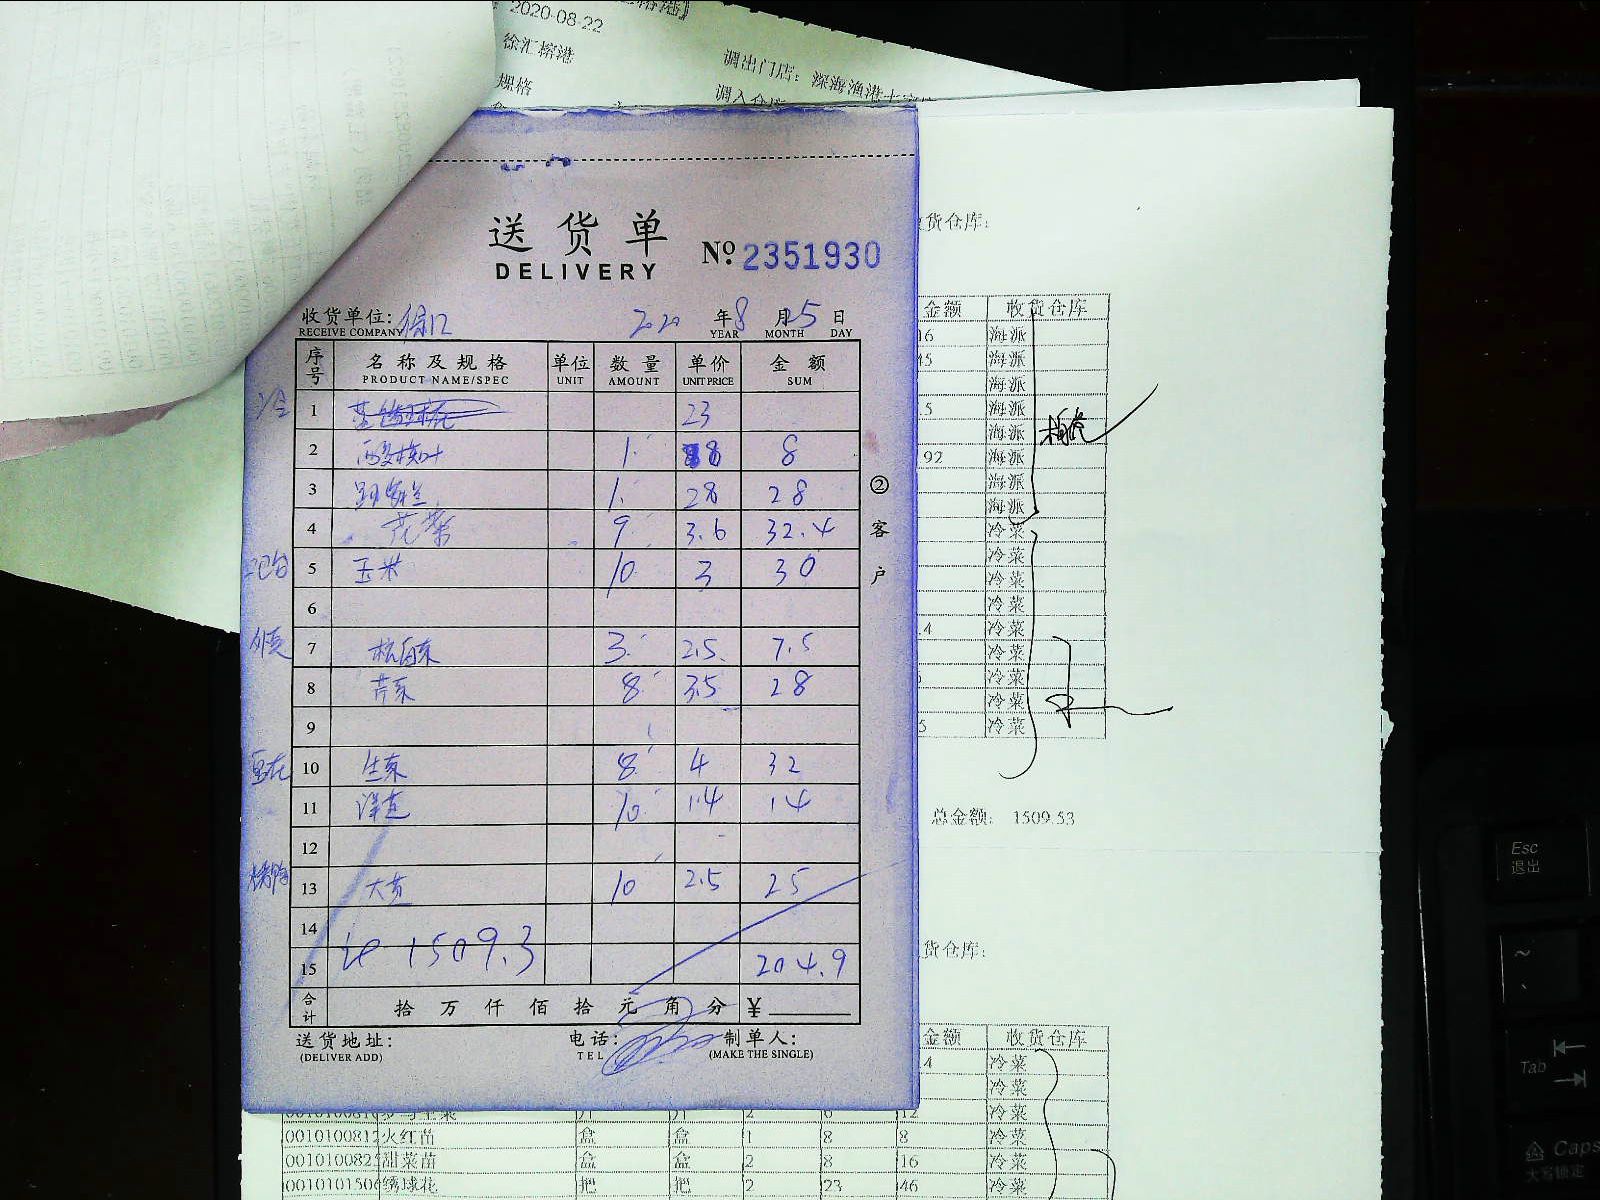 2020-08-22
徐汇榕港
调出门店: 深海渔港
规格
调入仓库
送货单
DELIVERY
№ 2351930
收货单位: 徐汇 2020 年 8 月 25 日
RECEIVE COMPANY YEAR MONTH DAY
序号 名称及规格 单位 数量 单价 金额
PRODUCT NAME/SPEC UNIT AMOUNT UNIT PRICE SUM
1 23
2 1 8 8
3 1 28 28
4 花菜 9 3.6 32.4
5 玉米 10 3 30
6
7 杭白菜 3 2.5 7.5
8 芹菜 8 3.5 28
9
10 生菜 8 4 32
11 洋葱 10 1.4 14
12
13 大黄 10 2.5 25
14
1509.3
15 204.9
合计 拾 万 仟 佰 拾 元 角 分 ¥
送货地址: 电话: 制单人:
(DELIVER ADD) TEL (MAKE THE SINGLE)
② 客户
货仓库:
金额 收货仓库
16 海派
45 海派
海派
.5 海派
海派
92 海派
海派
海派
冷菜
冷菜
冷菜
冷菜
.4 冷菜
冷菜
冷菜
冷菜
5 冷菜
总金额: 1509.53
货仓库:
金额 收货仓库
4 冷菜
冷菜
2 6 12 冷菜
001010081 火红苗 盒 盒 1 8 8 冷菜
001010082 甜菜苗 盒 盒 2 8 16 冷菜
001010150 绣球花 把 把 2 23 46 冷菜
Esc
退出
~
Tab
Caps
大写锁定